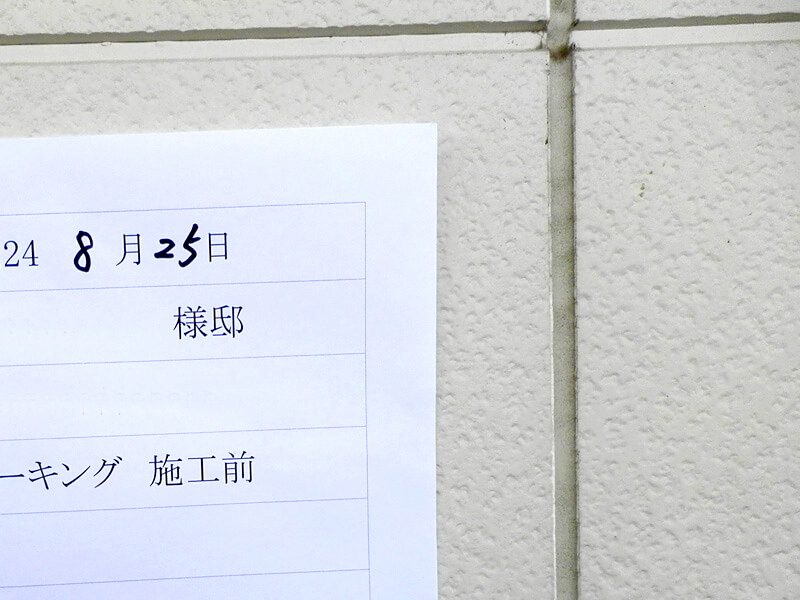 24 8月25日
様邸
ーキング 施工前